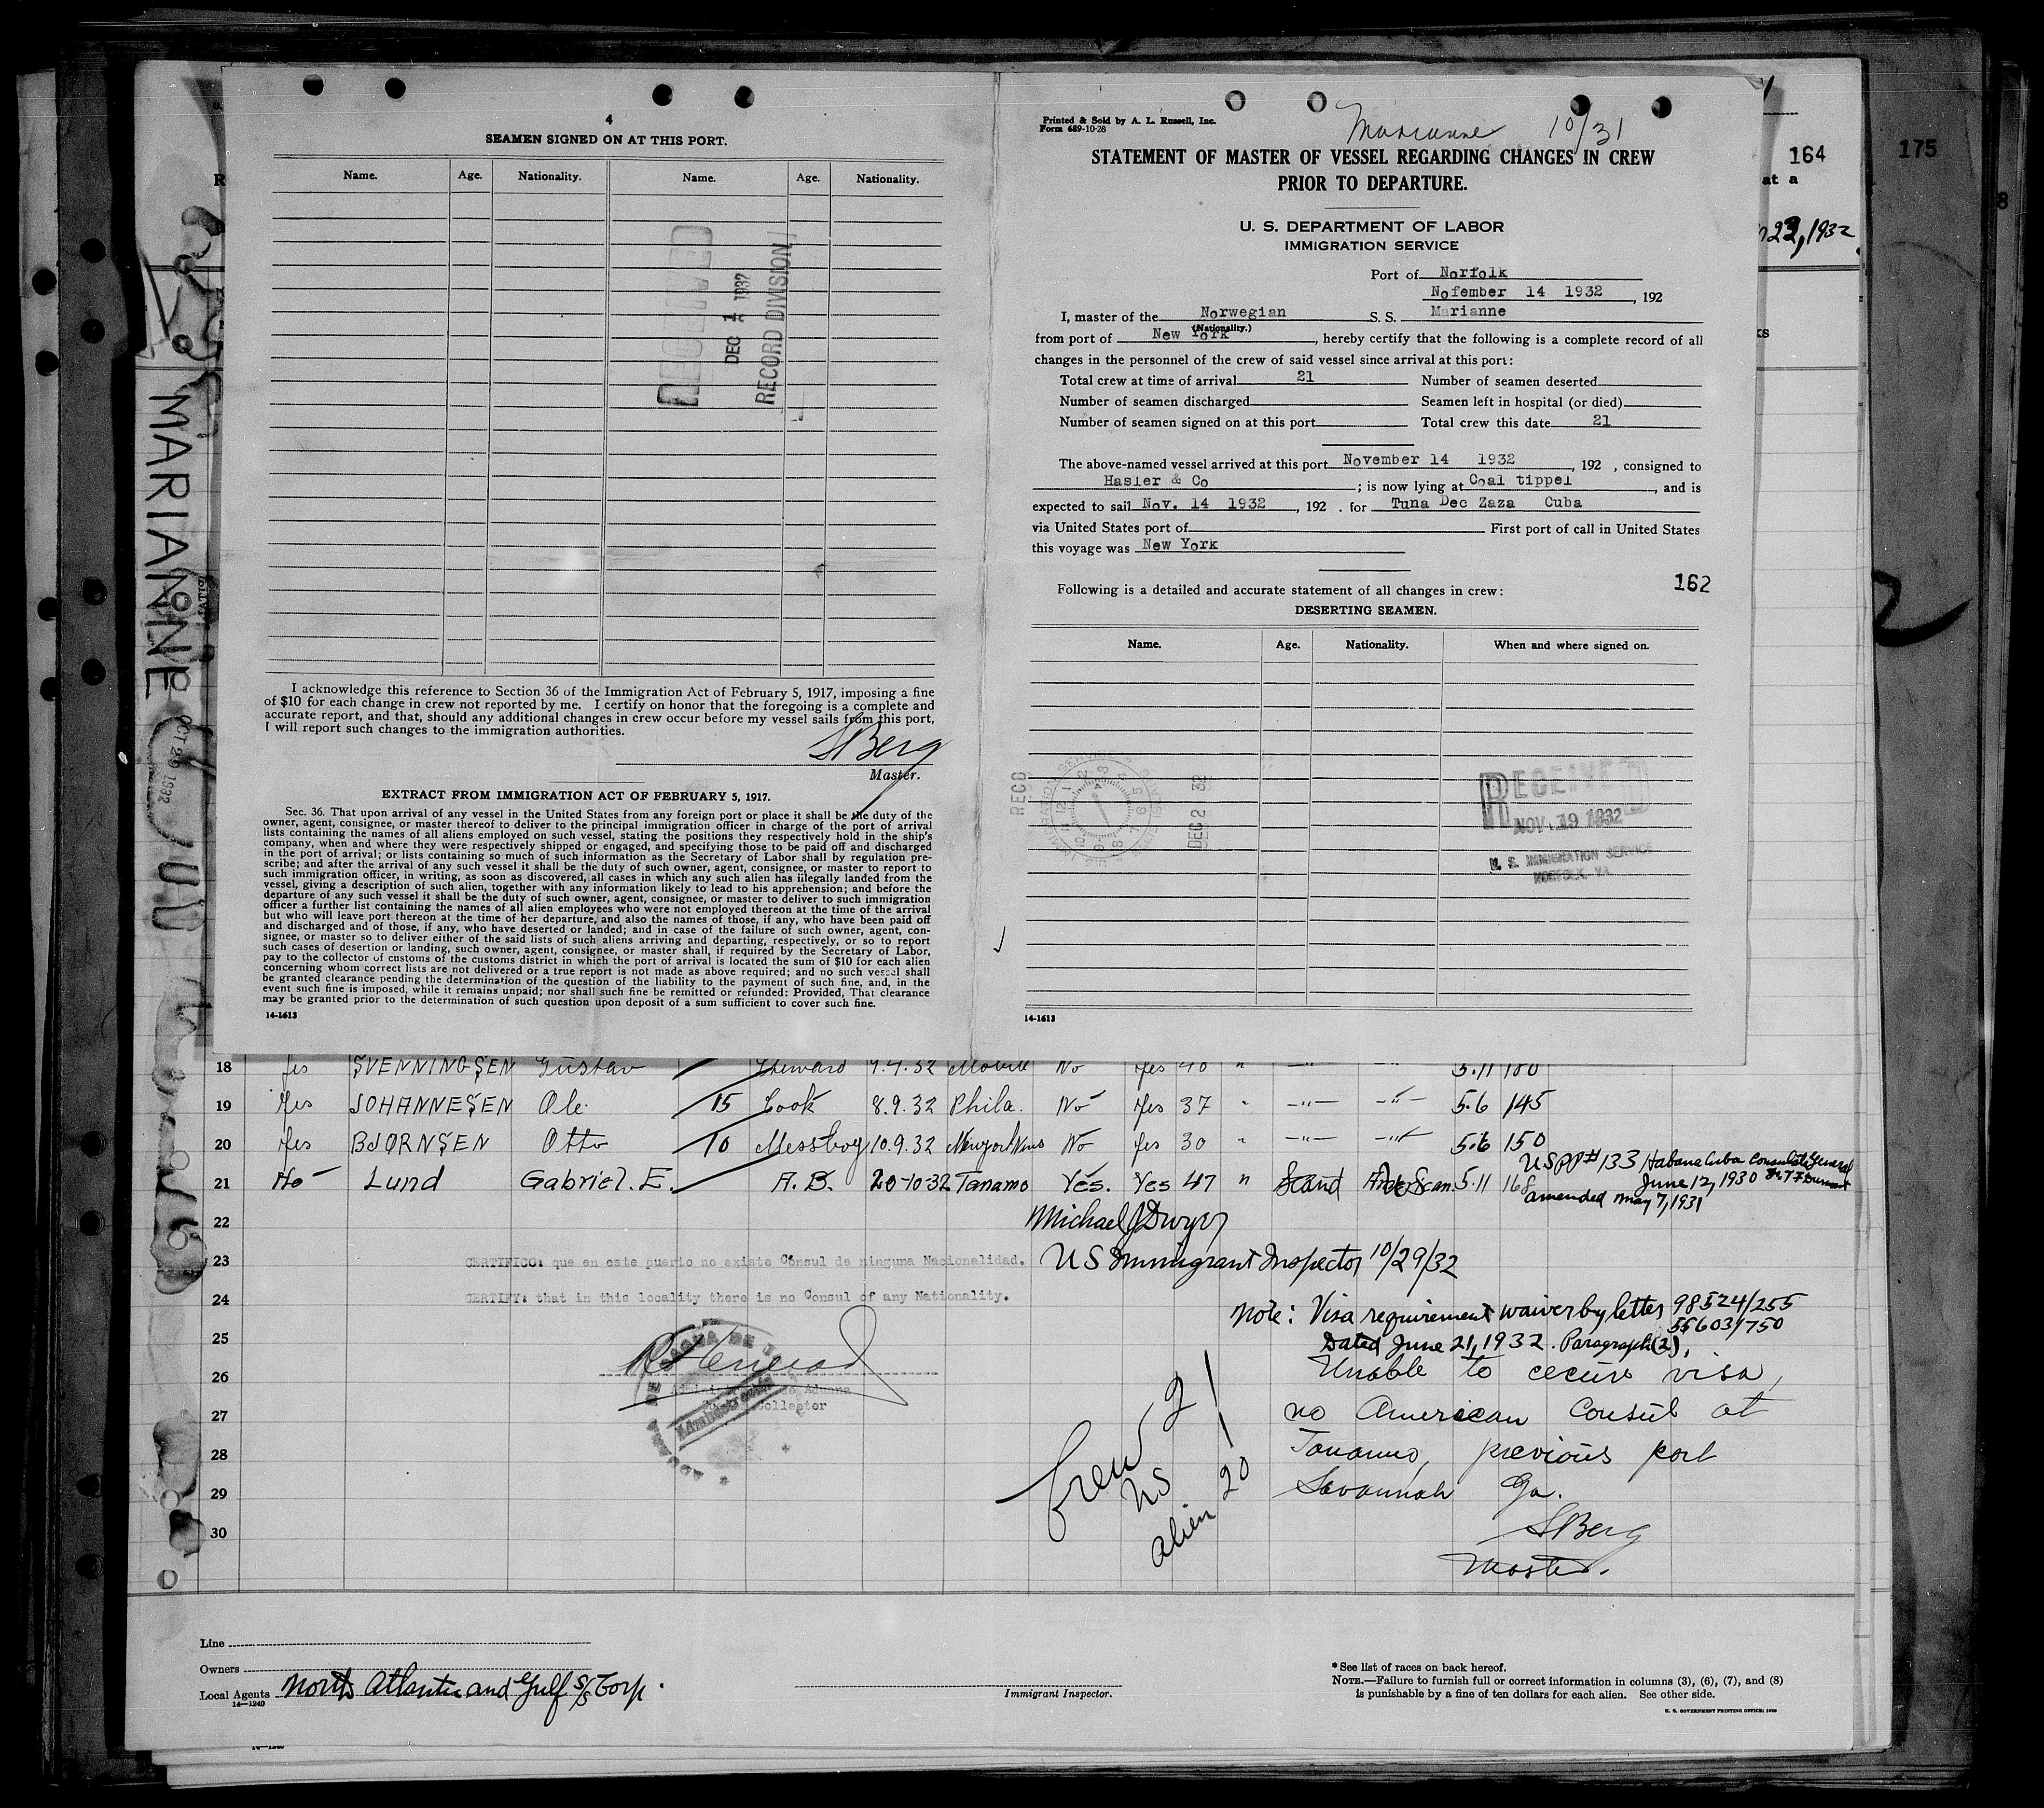 4
SEAMEN SIGNED ON AT THIS PORT.
Name. Age. Nationality. Name. Age. Nationality.
DEC 1 1932
RECORD DIVISION
I acknowledge this reference to Section 36 of the Immigration Act of February 5, 1917, imposing a fine
of $10 for each change in crew not reported by me. I certify on honor that the foregoing is a complete and
accurate report, and that, should any additional changes in crew occur before my vessel sails from this port,
I will report such changes to the immigration authorities.
SBerg
Master.
EXTRACT FROM IMMIGRATION ACT OF FEBRUARY 5, 1917.
Sec. 36. That upon arrival of any vessel in the United States from any foreign port or place it shall be the duty of the
owner, agent, consignee, or master thereof to deliver to the principal immigration officer in charge of the port of arrival
lists containing the names of all aliens employed on such vessel, stating the positions they respectively hold in the ship's
company, when and where they were respectively shipped or engaged, and specifying those to be paid off and discharged
in the port of arrival; or lists containing so much of such information as the Secretary of Labor shall by regulation pre-
scribe; and after the arrival of any such vessel it shall be the duty of such owner, agent, consignee, or master to report to
such immigration officer, in writing, as soon as discovered, all cases in which any such alien has illegally landed from the
vessel, giving a description of such alien, together with any information likely to lead to his apprehension; and before the
departure of any such vessel it shall be the duty of such owner, agent, consignee, or master to deliver to such immigration
officer a further list containing the names of all alien employees who were not employed thereon at the time of the arrival
but who will leave port thereon at the time of her departure, and also the names of those, if any, who have been paid off
and discharged and of those, if any, who have deserted or landed; and in case of the failure of such owner, agent, con-
signee, or master so to deliver either of the said lists of such aliens arriving and departing, respectively, or so to report
such cases of desertion or landing, such owner, agent, consignee, or master shall, if required by the Secretary of Labor,
pay to the collector of customs of the customs district in which the port of arrival is located the sum of $10 for each alien
concerning whom correct lists are not delivered or a true report is not made as above required; and no such vessel shall
be granted clearance pending the determination of the question of the liability to the payment of such fine, and, in the
event such fine is imposed, while it remains unpaid; nor shall such fine be remitted or refunded: Provided, That clearance
may be granted prior to the determination of such question upon deposit of a sum sufficient to cover such fine.
14-1613
Printed & Sold by A. L. Russell, Inc.
Form 689-10-28
Marianne 10/31
STATEMENT OF MASTER OF VESSEL REGARDING CHANGES IN CREW
PRIOR TO DEPARTURE.
U. S. DEPARTMENT OF LABOR
IMMIGRATION SERVICE
Port of Norfolk
Nofember 14 1932, 192
I, master of the Norwegian S. S. Marianne
(Nationality.)
from port of New York, hereby certify that the following is a complete record of all
changes in the personnel of the crew of said vessel since arrival at this port:
Total crew at time of arrival 21 Number of seamen deserted
Number of seamen discharged Seamen left in hospital (or died)
Number of seamen signed on at this port Total crew this date 21
The above-named vessel arrived at this port November 14 1932, 192 , consigned to
Hasler & Co ; is now lying at Coal tippel, and is
expected to sail Nov. 14 1932, 192 . for Tuna Dec Zaza Cuba
via United States port of First port of call in United States
this voyage was New York
162
Following is a detailed and accurate statement of all changes in crew:
DESERTING SEAMEN.
Name. Age. Nationality. When and where signed on.
RECD
DEC 2 32
RECEIVED
NOV. 19 1932
U. S. IMMIGRATION SERVICE
NORFOLK, VA
14-1613
164
175
at a
22, 1932
MARIANNE
OCT 29 1932
18 Yes SVENNINGSEN Gustav Steward 9.4.32 Mobile No Yes 40 " 5.11 180
19 Yes JOHANNESEN Ole 15 Cook 8.9.32 Phila. No Yes 37 " -"- -"- 5.6 145
20 Yes BJØRNSEN Otto 10 Messboy 10.9.32 Newport News No Yes 30 " -"- -"- 5.6 150
21 No Lund Gabriel. E. A. B. 20-10-32 Tanamo Yes. Yes 47 " Scand 5.11 168
USPP# 133 Habana Cuba Consulate General
June 12, 1930
amended May 7, 1931
22 Michael J Dwyer
23 CERTIFICO: que en este puerto no existe Cónsul de ninguna Nacionalidad. US Immigrant Inspector 10/29/32
24 CERTIFY: that in this locality there is no Consul of any Nationality.
25
26
27
28
29
30
Collector
Note: Visa requirement waiver by letter 98524/255
55603/750
Dated June 21, 1932. Paragraph (2).
Unable to cecure visa,
no American Consul at
Tanamo, previous port
Savannah Ga.
SBerg
Master.
Crew 21
US 1
alien 20
Line
Owners
Local Agents North Atlantic and Gulf S/S Corp.
14-1240
Immigrant Inspector.
* See list of races on back hereof.
NOTE.—Failure to furnish full or correct information in columns (3), (6), (7), and (8)
is punishable by a fine of ten dollars for each alien. See other side.
U. S. GOVERNMENT PRINTING OFFICE: 1930